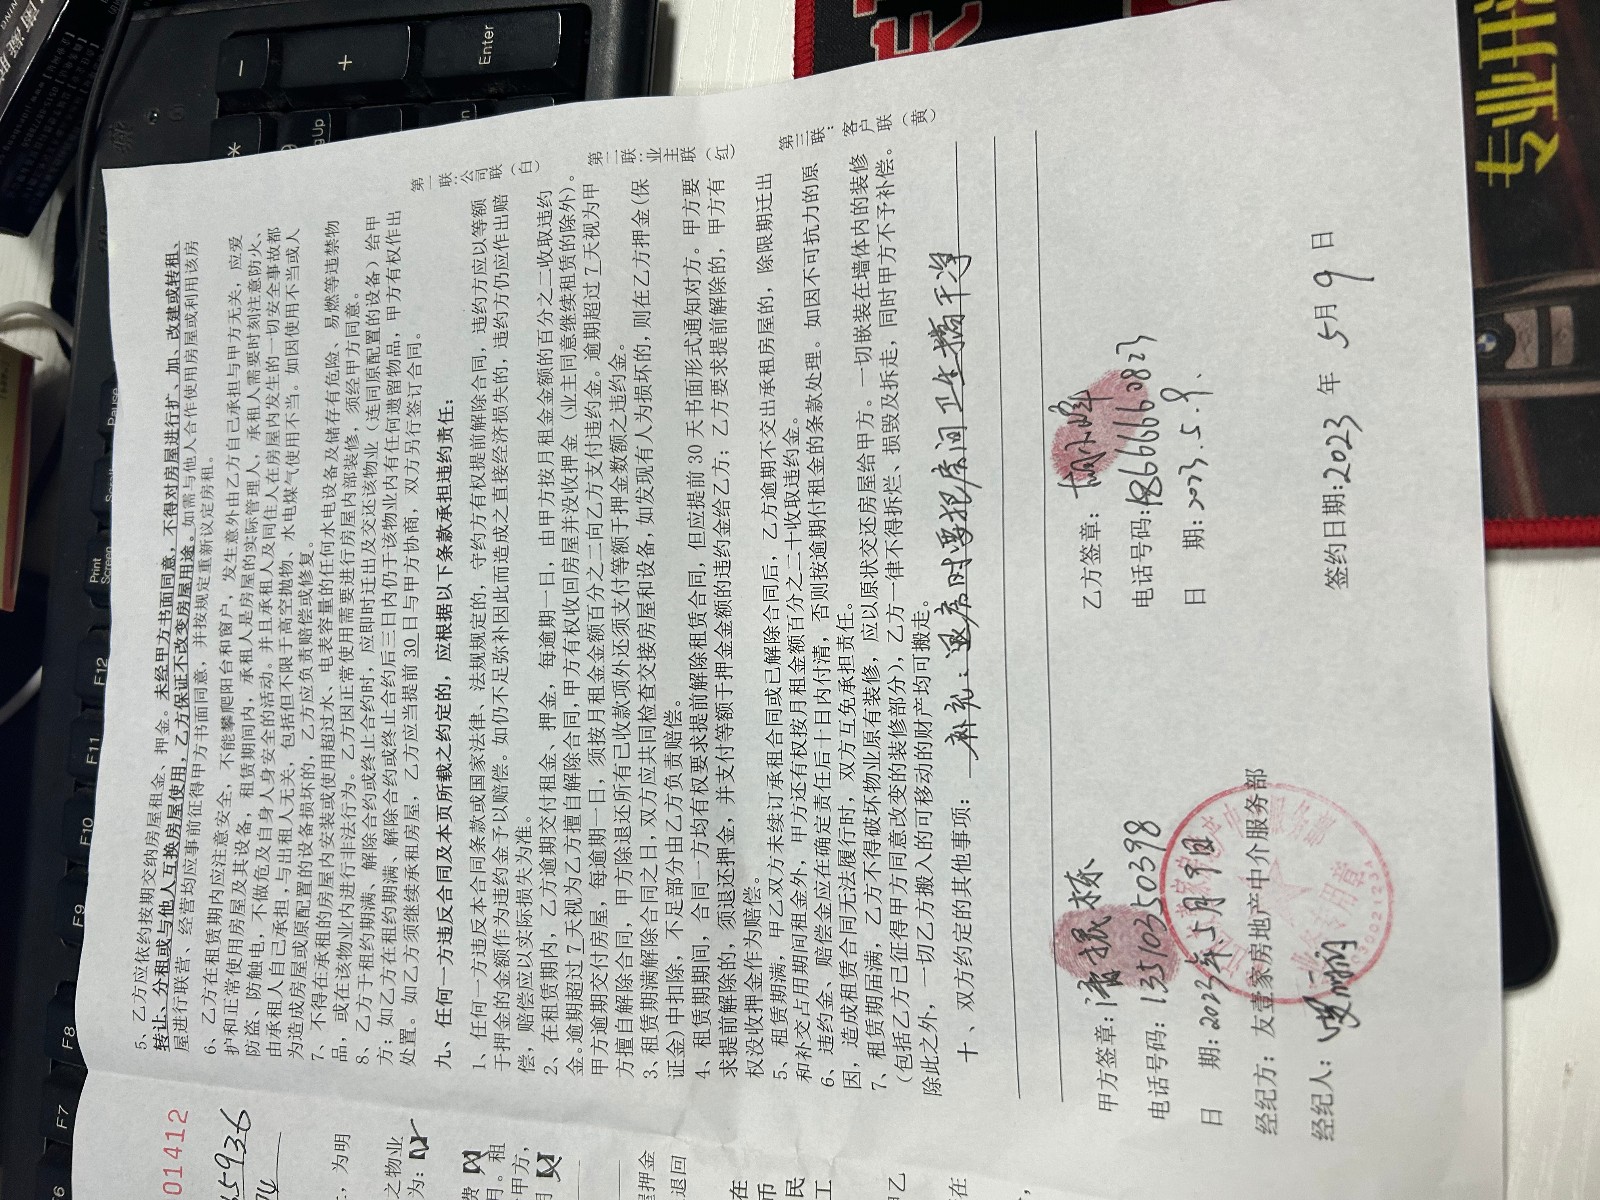 5、乙方应依约按期交纳房屋租金、押金。未经甲方书面同意，不得对房屋进行扩、加、改建或转租、
转让、分租或与他人互换房屋使用，乙方保证不改变房屋用途。如需与他人合作使用房屋或利用该房
屋进行联营、经营均应事前征得甲方书面同意，并按规定重新议定房租。
6、乙方在租赁期内应注意安全，不能攀爬阳台和窗户，发生意外由乙方自己承担与甲方无关，应爱
护和正常使用房屋及其设备，租赁期间内，承租人是房屋的实际管理人，承租人需要时刻注意防火、
防盗、防触电，不做危及自身人身安全的活动。并且承租人及同住人在房屋内发生的一切安全事故都
由承租人自己承担，与出租人无关，包括但不限于高空抛物、水电煤气使用不当。如因使用不当或人
为造成房屋或原配置的设备损坏的，乙方应负责赔偿或修复。
7、不得在承租的房屋内安装或使用超过水、电表容量的任何水电设备及储存有危险、易燃等违禁物
品，或在该物业内进行非法行为。乙方因正常使用需要进行房屋内部装修，须经甲方同意。
8、乙方于租约期满、解除合约或终止合约时，应即时迁出及交还该物业（连同原配置的设备）给甲
方；如乙方在租约期满、解除合约或终止合约后三日内仍于该物业内有任何遗留物品，甲方有权作出
处置。如乙方须继续承租房屋，乙方应当提前 30 日与甲方协商，双方另行签订合同。
九、任何一方违反合同及本页所载之约定的，应根据以下条款承担违约责任：
1、任何一方违反本合同条款或国家法律、法规规定的，守约方有权提前解除合同，违约方应以等额
于押金的金额作为违约金予以赔偿。如仍不足弥补因此而造成之直接经济损失的，违约方仍应作出赔
偿，赔偿应以实际损失为准。
2、在租赁期内，乙方逾期交付租金、押金，每逾期一日，由甲方按月租金金额的百分之二收取违约
金。逾期超过 7 天视为乙方擅自解除合同，甲方有权收回房屋并没收押金（业主同意继续租赁的除外）。
甲方逾期交付房屋，每逾期一日，须按月租金金额百分之二向乙方支付违约金。逾期超过 7 天视为甲
方擅自解除合同，甲方除退还所有已收款项外还须支付等额于押金数额之违约金。
3、租赁期满解除合同之日，双方应共同检查交接房屋和设备，如发现有人为损坏的，则在乙方押金（保
证金）中扣除，不足部分由乙方负责赔偿。
4、租赁期期间，合同一方均有权要求提前解除租赁合同，但应提前 30 天书面形式通知对方。甲方要
求提前解除的，须退还押金，并支付等额于押金金额的违约金给乙方；乙方要求提前解除的，甲方有
权没收押金作为赔偿。
5、租赁期满，甲乙双方未续订承租合同或已解除合同后，乙方逾期不交出承租房屋的，除限期迁出
和补交占用期间租金外，甲方还有权按月租金额百分之二十收取违约金。
6、违约金、赔偿金应在确定责任后十日内付清，否则按逾期付租金的条款处理。如因不可抗力的原
因，造成租赁合同无法履行时，双方互免承担责任。
7、租赁期届满，乙方不得破坏物业原有装修，应以原状交还房屋给甲方。一切嵌装在墙体内的装修
（包括乙方已征得甲方同意改变的装修部分），乙方一律不得拆烂、损毁及拆走，同时甲方不予补偿。
除此之外，一切乙方搬入的可移动的财产均可搬走。
十、双方约定的其他事项：补充：退房时要把房间卫生搞干净
甲方签章：
乙方签章：
电话号码：13510350398
电话号码：18666660823
日 期：2023年5月9日
日 期：2023.5.9.
经纪方：友壹家房地产中介服务部
经纪人：
签约日期：2023 年 5月 9 日
第一联：公司联（白）
第二联：业主联（红）
第三联：客户联（黄）
业务专用章
01412
65936
，为明
之物业
为：
费
月。租
甲方，
月
押金
退回
在
币
民
工
甲乙
在
Enter
+
-
*
PgUp
Pause
Scroll
Print
Screen
F12
F11
F10
F9
F8
F7
F6
专业开